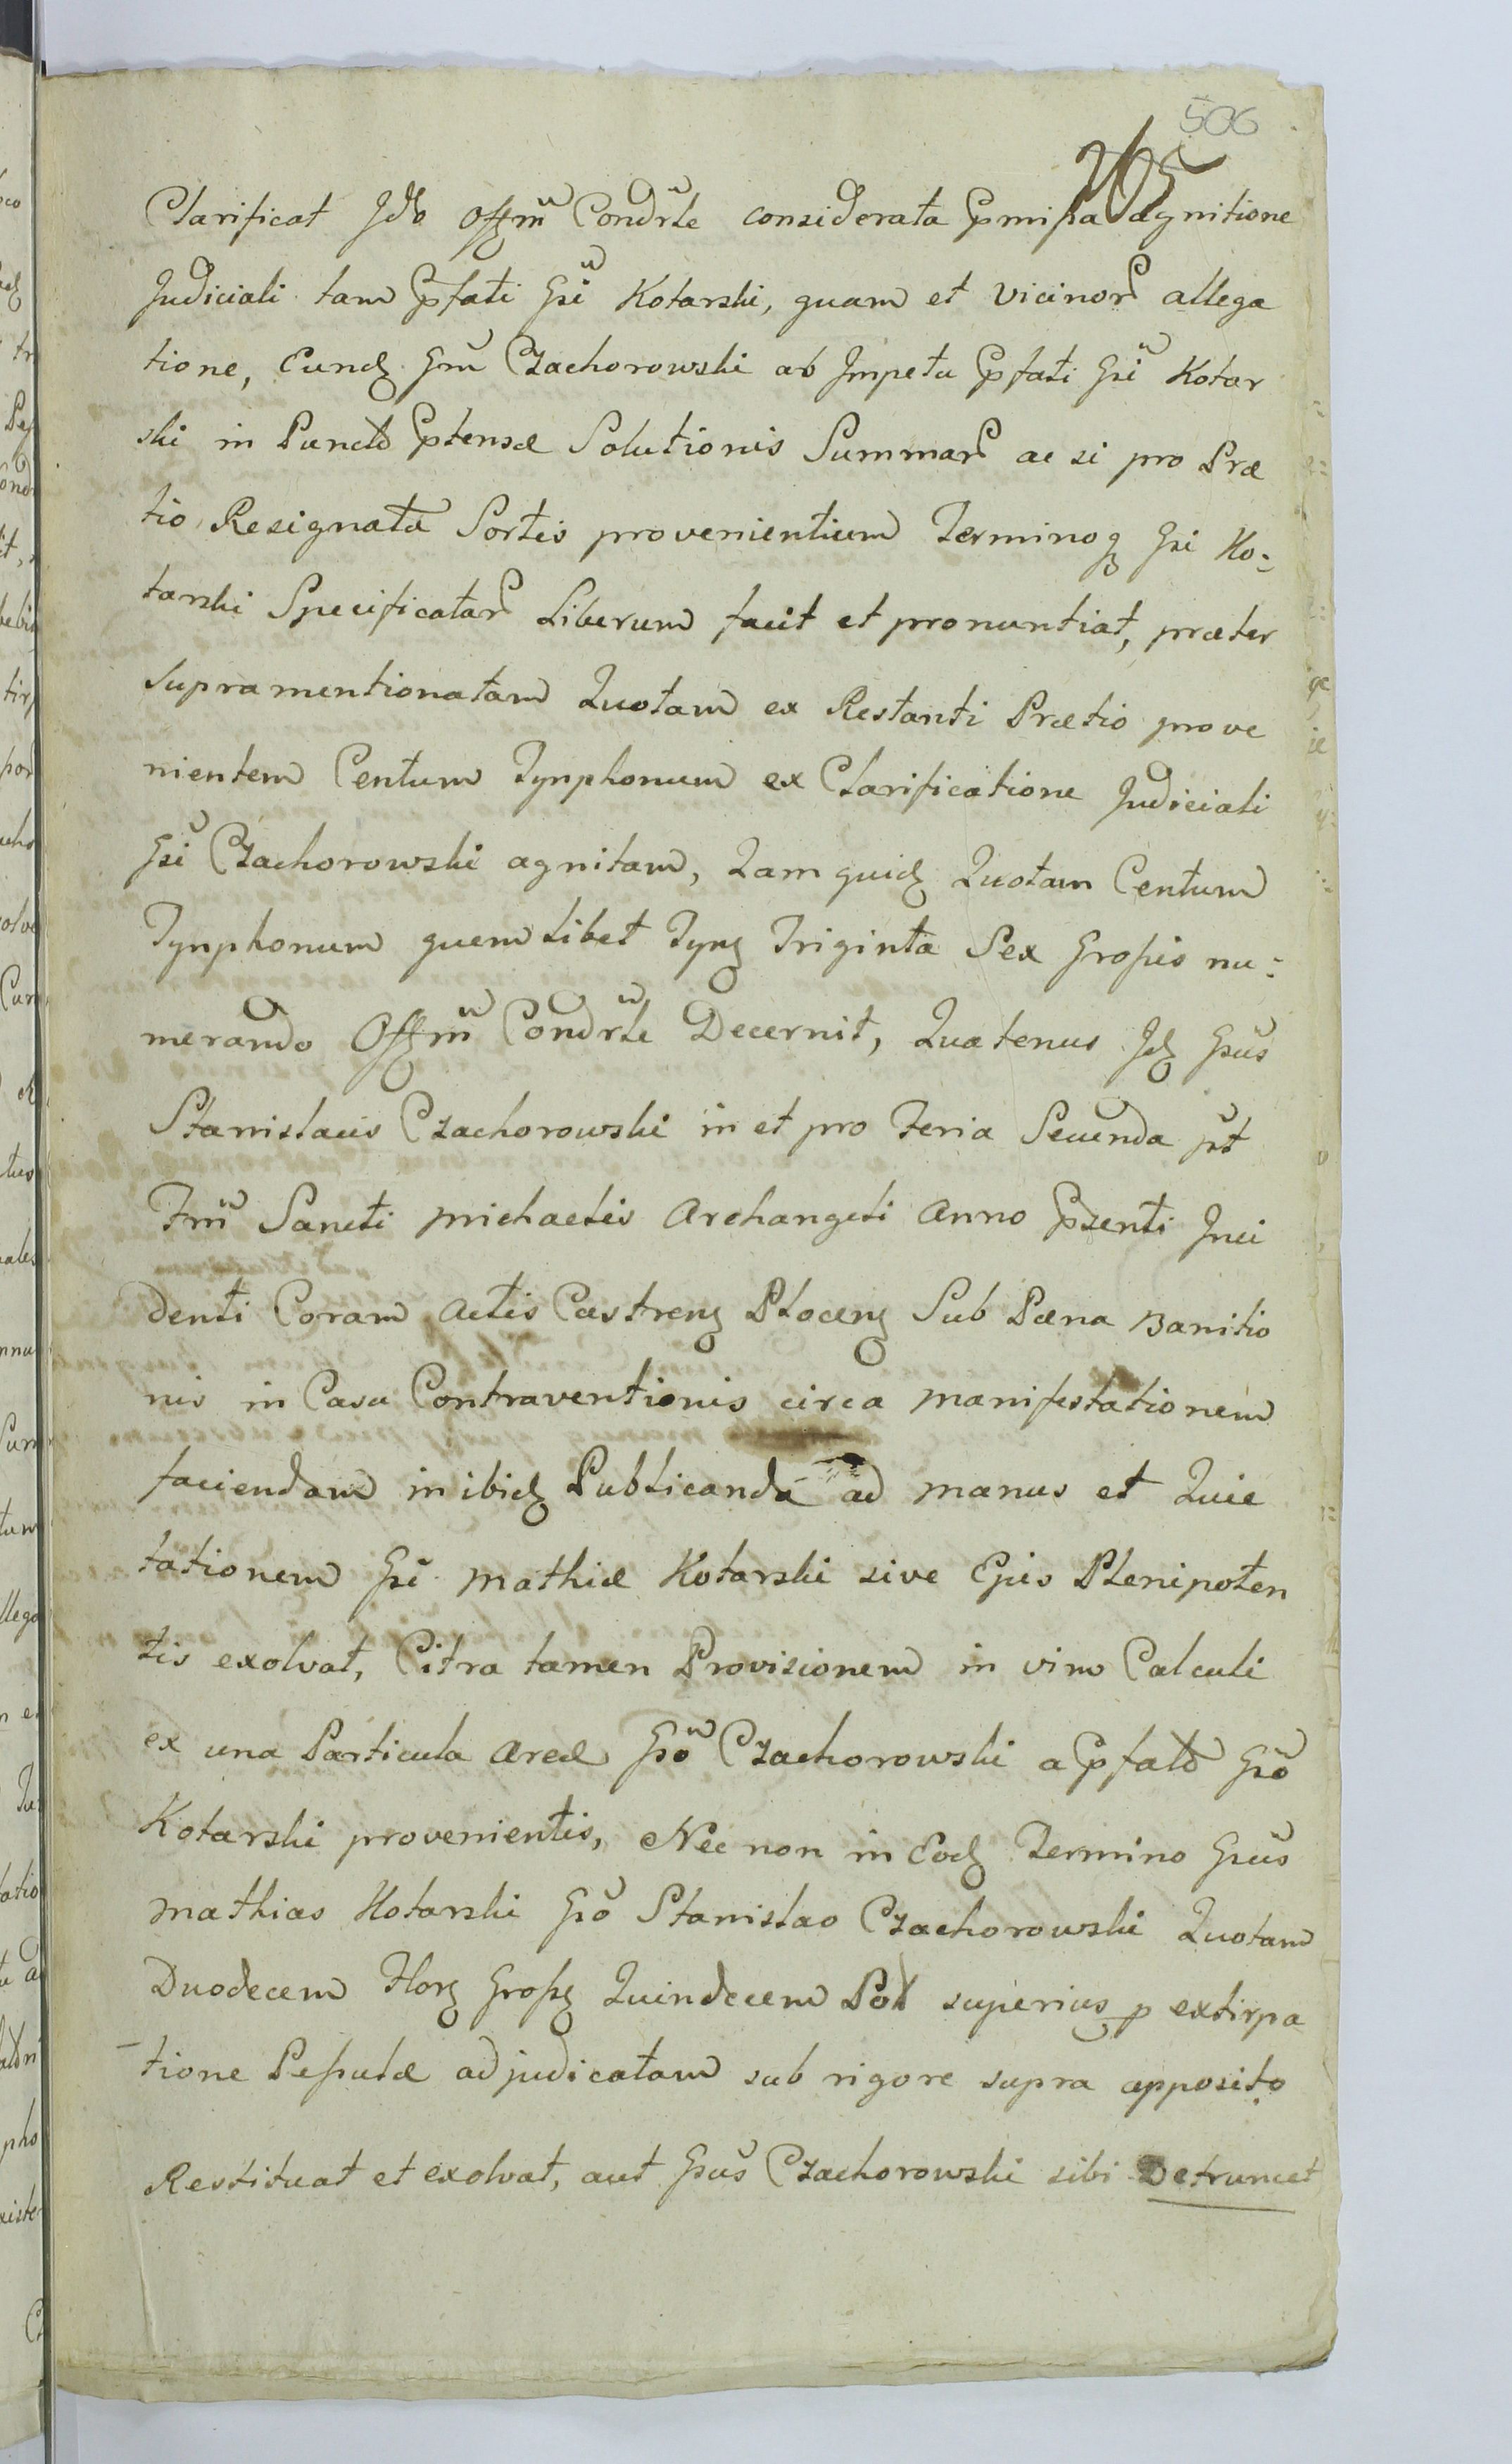 506
265
Clarificat Jdo Offm̃ Condr̃le considerata p̃missa agnitione
Judiciali tam p̃fati Gsĩ Kotarski, quam et Vicinor̃ allega
tione, Eundȝ Gm̃ Czachorowski ab Jmpetu p̃fati Gsĩ Kotar
ski in Puncto p̃tensæ Solutionis Summar̃ ac si pro Præ
tio Resignatæ Sortis provenientium Terminoq̃ Gsi Ko:
tarski Specificatar̃ Liberum facit et pronuntiat, præter
supramentionatam Quotam ex Restanti Prætio prove
nientem Centum Tynphonum ex Clarificatione Judiciali
Gsĩ Czachorowski agnitam, Quam quidȝ Quotam Centum
Tynphonum quemlibet Tynȝ Triginta Sex Grossis nu:
merando Offm̃ Condr̃le Decernit, Quatenus Jdȝ Gsũs
Stanislaus Czachorowski in et pro Feria Secunda p̃t
Fm̃ Sancti Michaelis Archangeli Anno p̃senti Jnci
denti Coram Actis Castrenȝ Plocenȝ Sub Pæna Banitio
nis in Casu Contraventionis circa Manifestationem
faciendam inibidȝ Publicanda ad manus et Quie
tationem Gsĩ Mathiæ Kotarski sive Ejus Plenipoten
tis exolvat, Citra tamen Provisionem in vim Calculi
ex una Particula Areæ Gsõ Czachorowski a p̃fato Gsõ
Kotarski provenientis, Nec non in Eodȝ Termino Gsũs
Mathias Kotarski Gsõ Stanislao Czachorowski Quotam
Duodecem Florȝ Grossȝ Quindecem Pol superius p extirpa
tione Pessulæ adjudicatam sub rigore supra apposito
Restituat et exolvat, aut Gsũs Czachorowski sibi Detruncet